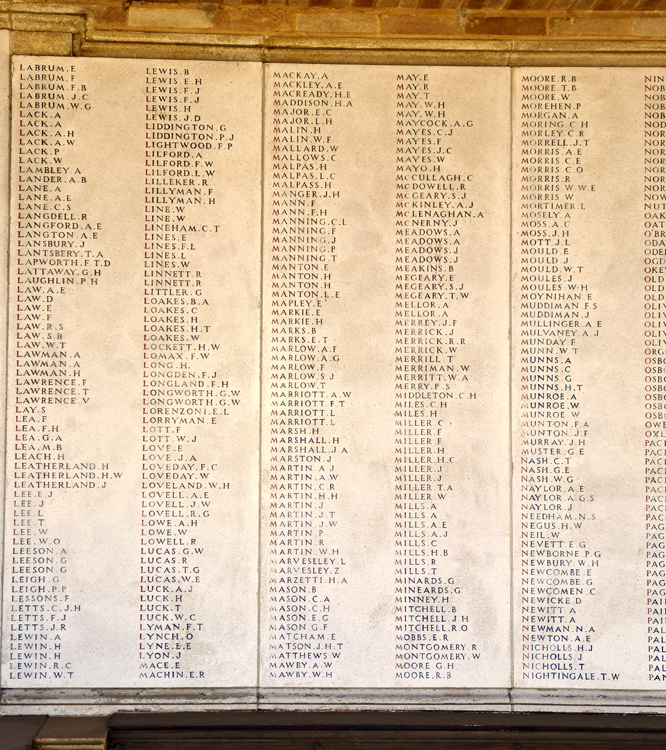 LABRUM.E
LABRUM.F
LABRUM.F.B
LABRUM.J.C
LABRUM.W.G
LACK.A
LACK.A
LACK.A.H
LACK.A.W
LACK.P
LACK.W
LAMBLEY.A
LANDER.A.B
LANE.A
LANE.A.E
LANE.C.S
LANGDELL.R
LANGFORD.A.E
LANGTON.A.E
LANSBURY.J
LANTSBERY.T.A
LAPWORTH.F.T.D
LATTAWAY.G.H
LAUGHLIN.P.H
LAW.A.E
LAW.D
LAW.E
LAW.F
LAW.R.S
LAW.S.B
LAW.W.T
LAWMAN.A
LAWMAN.A
LAWMAN.H
LAWRENCE.F
LAWRENCE.T
LAWRENCE.V
LAY.S
LEA.F
LEA.F.H
LEA.G.A
LEA.M.B
LEACH.H
LEATHERLAND.H
LEATHERLAND.H.W
LEATHERLAND.J
LEE.E.J
LEE.J
LEE.L
LEE.T
LEE.W
LEE.W.O
LEESON.A
LEESON.G
LEESON.G
LEIGH.G
LEIGH.P.P
LESSONS.F
LETTS.C.J.H
LETTS.F.J
LETTS.J.R
LEWIN.A
LEWIN.H
LEWIN.H
LEWIN.R.C
LEWIN.W.T
LEWIS.B
LEWIS.E.H
LEWIS.F.J
LEWIS.F.J
LEWIS.H
LEWIS.J.D
LIDDINGTON.G
LIDDINGTON.P.J
LIGHTWOOD.F.P
LILFORD.A
LILFORD.F.W
LILFORD.L.W
LILLEKER.R
LILLYMAN.F
LILLYMAN.H
LINE.W
LINE.W
LINEHAM.C.T
LINES.E
LINES.F.L
LINES.L
LINES.W
LINNETT.R
LINNETT.R
LITTLER.G
LOAKES.B.A
LOAKES.C
LOAKES.H
LOAKES.H.T
LOAKES.W
LOCKETT.H.W
LOMAX.F.W
LONG.H
LONGDEN.F.J
LONGLAND.F.H
LONGWORTH.G.W
LONGWORTH.G.W
LORENZONI.E.L
LORRYMAN.E
LOTT.F
LOTT.W.J
LOVE.E
LOVE.J.A
LOVEDAY.F.C
LOVEDAY.W
LOVELAND.W.H
LOVELL.A.E
LOVELL.J.W
LOVELL.R.G
LOWE.A.H
LOWE.W
LOWELL.R
LUCAS.G.W
LUCAS.R
LUCAS.T.G
LUCAS.W.E
LUCK.A.J
LUCK.H
LUCK.T
LUCK.W.C
LYMAN.F.T
LYNCH.O
LYNE.E.E
LYON.J
MACE.E
MACHIN.E.R
MACKAY.A
MACKLEY.A.E
MACREADY.H.E
MADDISON.H.A
MAJOR.E.C
MAJOR.L.H
MALIN.H
MALIN.W.F
MALLARD.W
MALLOWS.C
MALPAS.H
MALPAS.L.C
MALPASS.H
MANGER.J.H
MANN.F
MANN.F.H
MANNING.C.L
MANNING.F
MANNING.J
MANNING.P
MANNING.T
MANTON.E
MANTON.H
MANTON.H
MANTON.L.E
MAPLEY.E
MARKIE.E
MARKIE.H
MARKS.B
MARKS.E.T
MARLOW.A.F
MARLOW.A.G
MARLOW.F
MARLOW.S.J
MARLOW.T
MARRIOTT.A.W
MARRIOTT.F.T
MARRIOTT.L
MARRIOTT.L
MARSH.H
MARSHALL.H
MARSHALL.J.A
MARSTON.J
MARTIN.A.J
MARTIN.A.W
MARTIN.C.R
MARTIN.H.H
MARTIN.J
MARTIN.J.T
MARTIN.J.W
MARTIN.P
MARTIN.R
MARTIN.W.H
MARVESELEY.L
MARVESLEY.Z
MARZETTI.H.A
MASON.B
MASON.C.A
MASON.C.H
MASON.E.G
MASON.G.F
MATCHAM.E
MATSON.J.H.T
MATTHEWS.W
MAWBY.A.W
MAWBY.W.H
MAY.E
MAY.R
MAY.T
MAY.W.H
MAY.W.H
MAYCOCK.A.G
MAYES.C.J
MAYES.F
MAYES.J.C
MAYES.W
MAYO.H
McCULLAGH.C
McDOWELL.R
McGEARY.S.J
McKINLEY.A.J
McLENAGHAN.A
McNERNY.J
MEADOWS.A
MEADOWS.A
MEADOWS.J
MEADOWS.J
MEAKINS.B
MEGEARY.E
MEGEARY.S.J
MEGEARY.T.W
MELLOR.A
MELLOR.A
MERREY.J.F
MERRICK.J
MERRICK.R.R
MERRICK.W
MERRILL.T
MERRIMAN.W
MERRITT.W.A
MERRY.P.S
MIDDLETON.C.H
MILES.C.H
MILES.H
MILLER.C
MILLER.F
MILLER.F
MILLER.H
MILLER.H.C
MILLER.J
MILLER.J
MILLER.T.A
MILLER.W
MILLS.A
MILLS.A
MILLS.A.E
MILLS.A.J
MILLS.C
MILLS.H.B
MILLS.R
MILLS.T
MINARDS.G
MINEARDS.G
MINNEY.H
MITCHELL.B
MITCHELL.J.H
MITCHELL.R.O
MOBBS.E.R
MONTGOMERY.R
MONTGOMERY.W
MOORE.G.H
MOORE.R.B
MOORE.R.B
MOORE.T.B
MOORE.W
MOREHEN.P
MORGAN.A
MORING.C.H
MORLEY.C.R
MORRELL.J.T
MORRIS.A.E
MORRIS.C.E
MORRIS.C.O
MORRIS.R
MORRIS.W.W.E
MORRIS.W
MORTIMER.L
MOSELY.A
MOSS.A.C
MOSS.J.H
MOTT.J.L
MOULD.E
MOULD.J
MOULD.W.T
MOULES.J
MOULES.W.H
MOYNIHAN.E
MUDDIMAN.F.S
MUDDIMAN.J
MULLINGER.A.E
MULVANEY.A.J
MUNDAY.F
MUNN.W.T
MUNNS.A
MUNNS.C
MUNNS.G
MUNNS.H.T
MUNROE.A
MUNROE.W
MUNROE.W
MUNTON.F.A
MUNTON.J.F
MURRAY.J.H
MUSTER.G.E
NASH.C.T
NASH.G.E
NASH.W.G
NAYLOR.A.E
NAYLOR.A.G.S
NAYLOR.J
NEEDHAM.N.S
NEGUS.H.W
NEIL.W
NEVETT.E.G
NEWBORNE.P.G
NEWBURY.W.H
NEWCOMBE.E
NEWCOMBE.G
NEWCOMEN.C
NEWICKE.D
NEWITT.A
NEWITT.A
NEWMAN.N.A
NEWTON.A.E
NICHOLLS.H.J
NICHOLLS.J
NICHOLLS.T
NIGHTINGALE.T.W